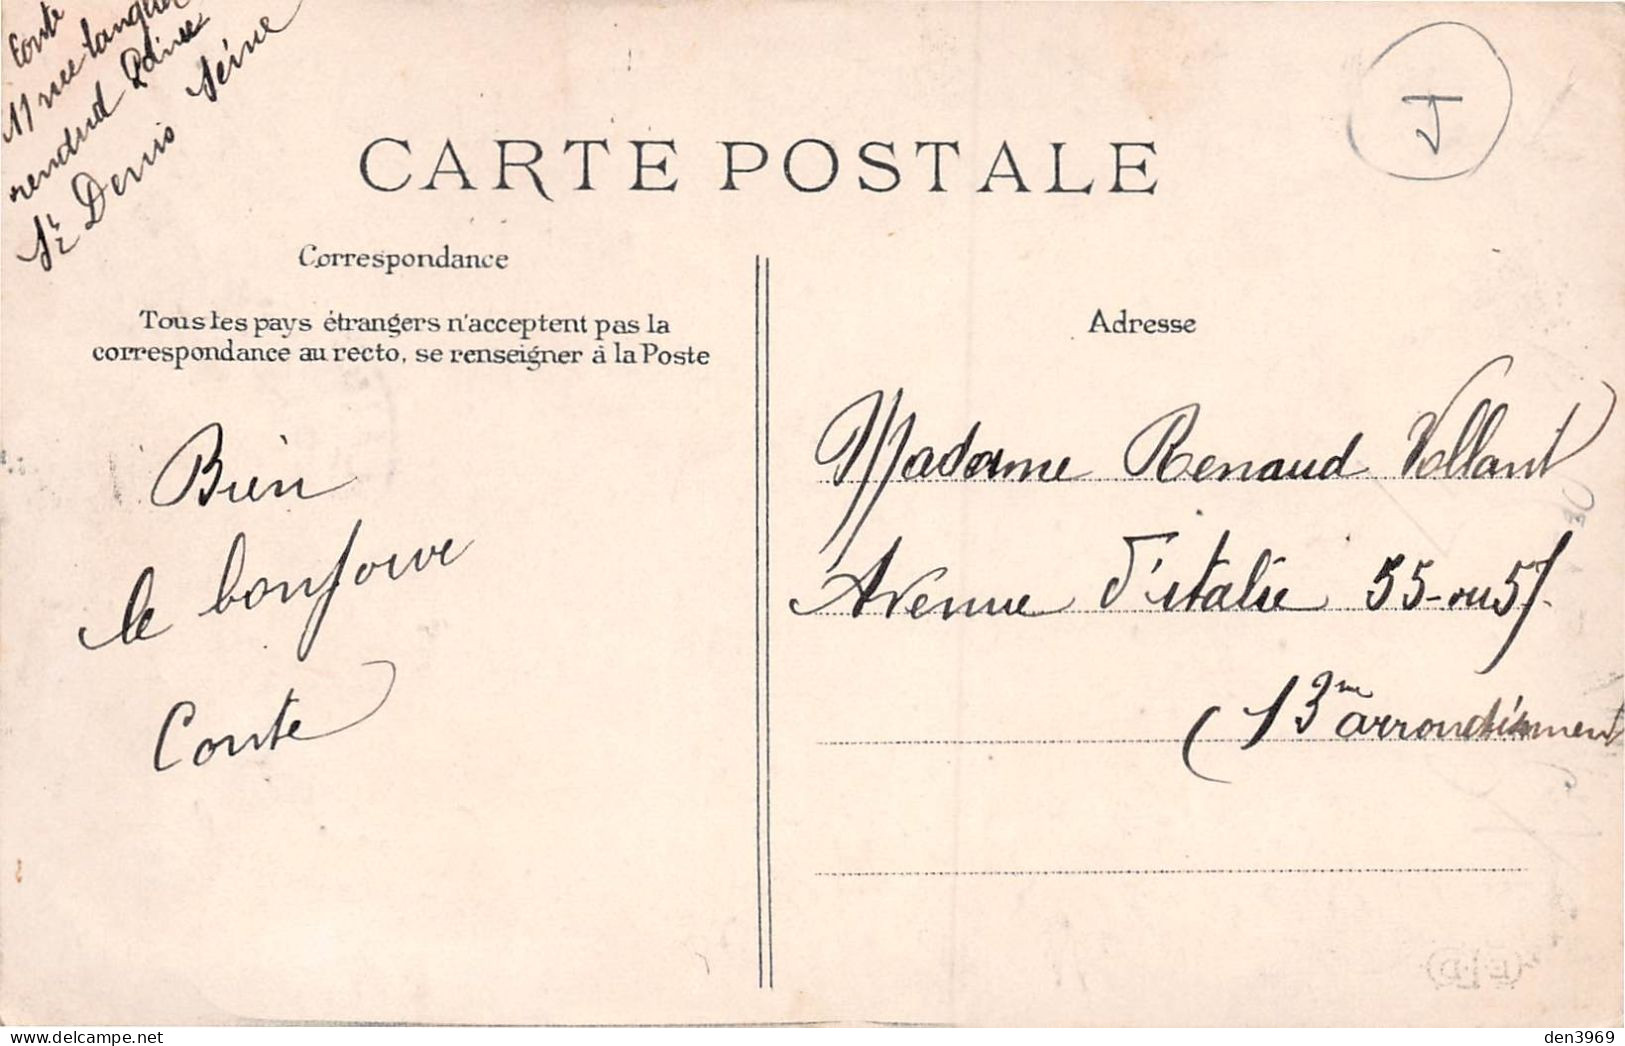 Conte
11 rue
St Denis Seine
J
CARTE POSTALE
Correspondance
Tous les pays étrangers n'acceptent pas la
correspondance au recto, se renseigner à la Poste
Bien
le bonjour
Conte
Adresse
Madame Renaud Vollant
Avenue d'italie 55-ou 57
(13me arrondisment
E.L.D
den3969